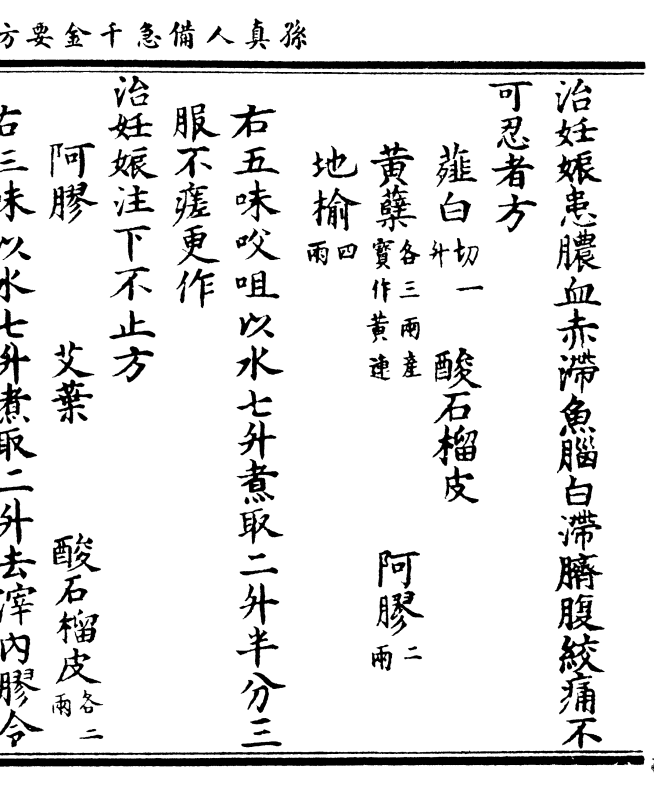 孫真人備急千金要方
治妊娠患膿血赤滯魚腦白滯臍腹絞痛不
可忍者方
薤白切一升 酸石榴皮
黃蘗各三兩產寶作黃連 阿膠二兩
地榆四兩
右五味㕮咀以水七升煮取二升半分三
服不瘥更作
治妊娠注下不止方
阿膠 艾葉 酸石榴皮各二兩
右三味以水七升煮取二升去滓內膠令